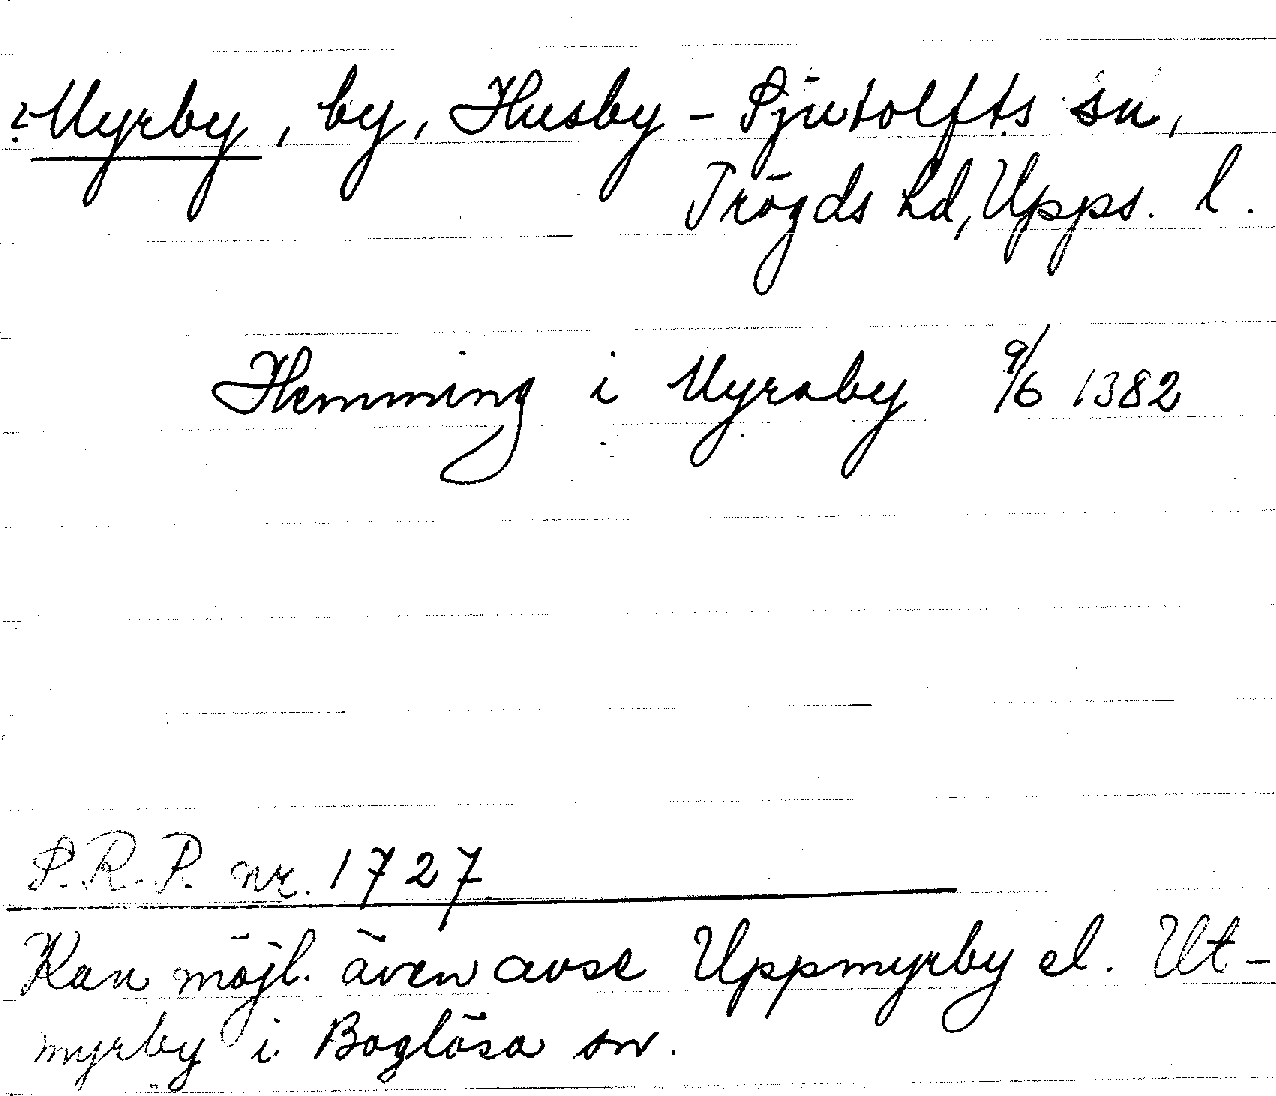 ? Myrby, by, Husby - Sjutolfts sn,
Trögds hd, Upps. l.
Hemming i Myraby 9/6 1382
S.R.P. nr. 1727
Kan möjl. även avse Uppmyrby el. Ut-
myrby i Boglösa sn.